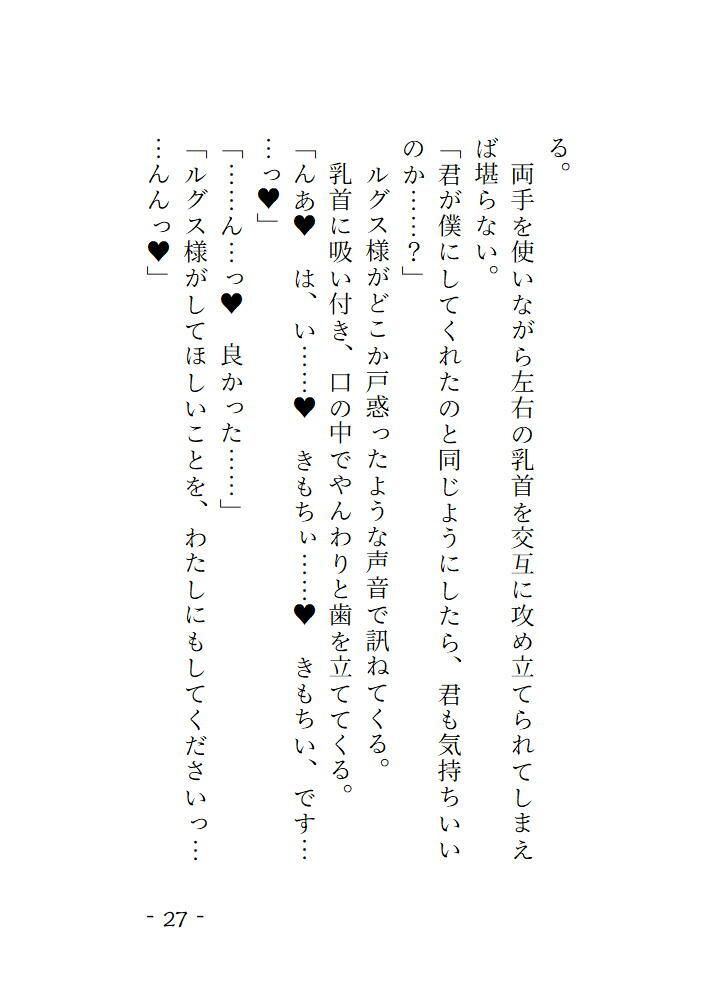 る。
　両手を使いながら左右の乳首を交互に攻め立てられてしまえ
ば堪らない。
「君が僕にしてくれたのと同じようにしたら、君も気持ちいい
のか……？」
　ルグス様がどこか戸惑ったような声音で訊ねてくる。
　乳首に吸い付き、口の中でやんわりと歯を立ててくる。
「んあ♥　は、い……♥　きもちぃ……♥　きもちい、です…
…っ♥」
「……ん…っ♥　良かった……」
「ルグス様がしてほしいことを、わたしにもしてくださいっ…
…んんっ♥」
- 27 -